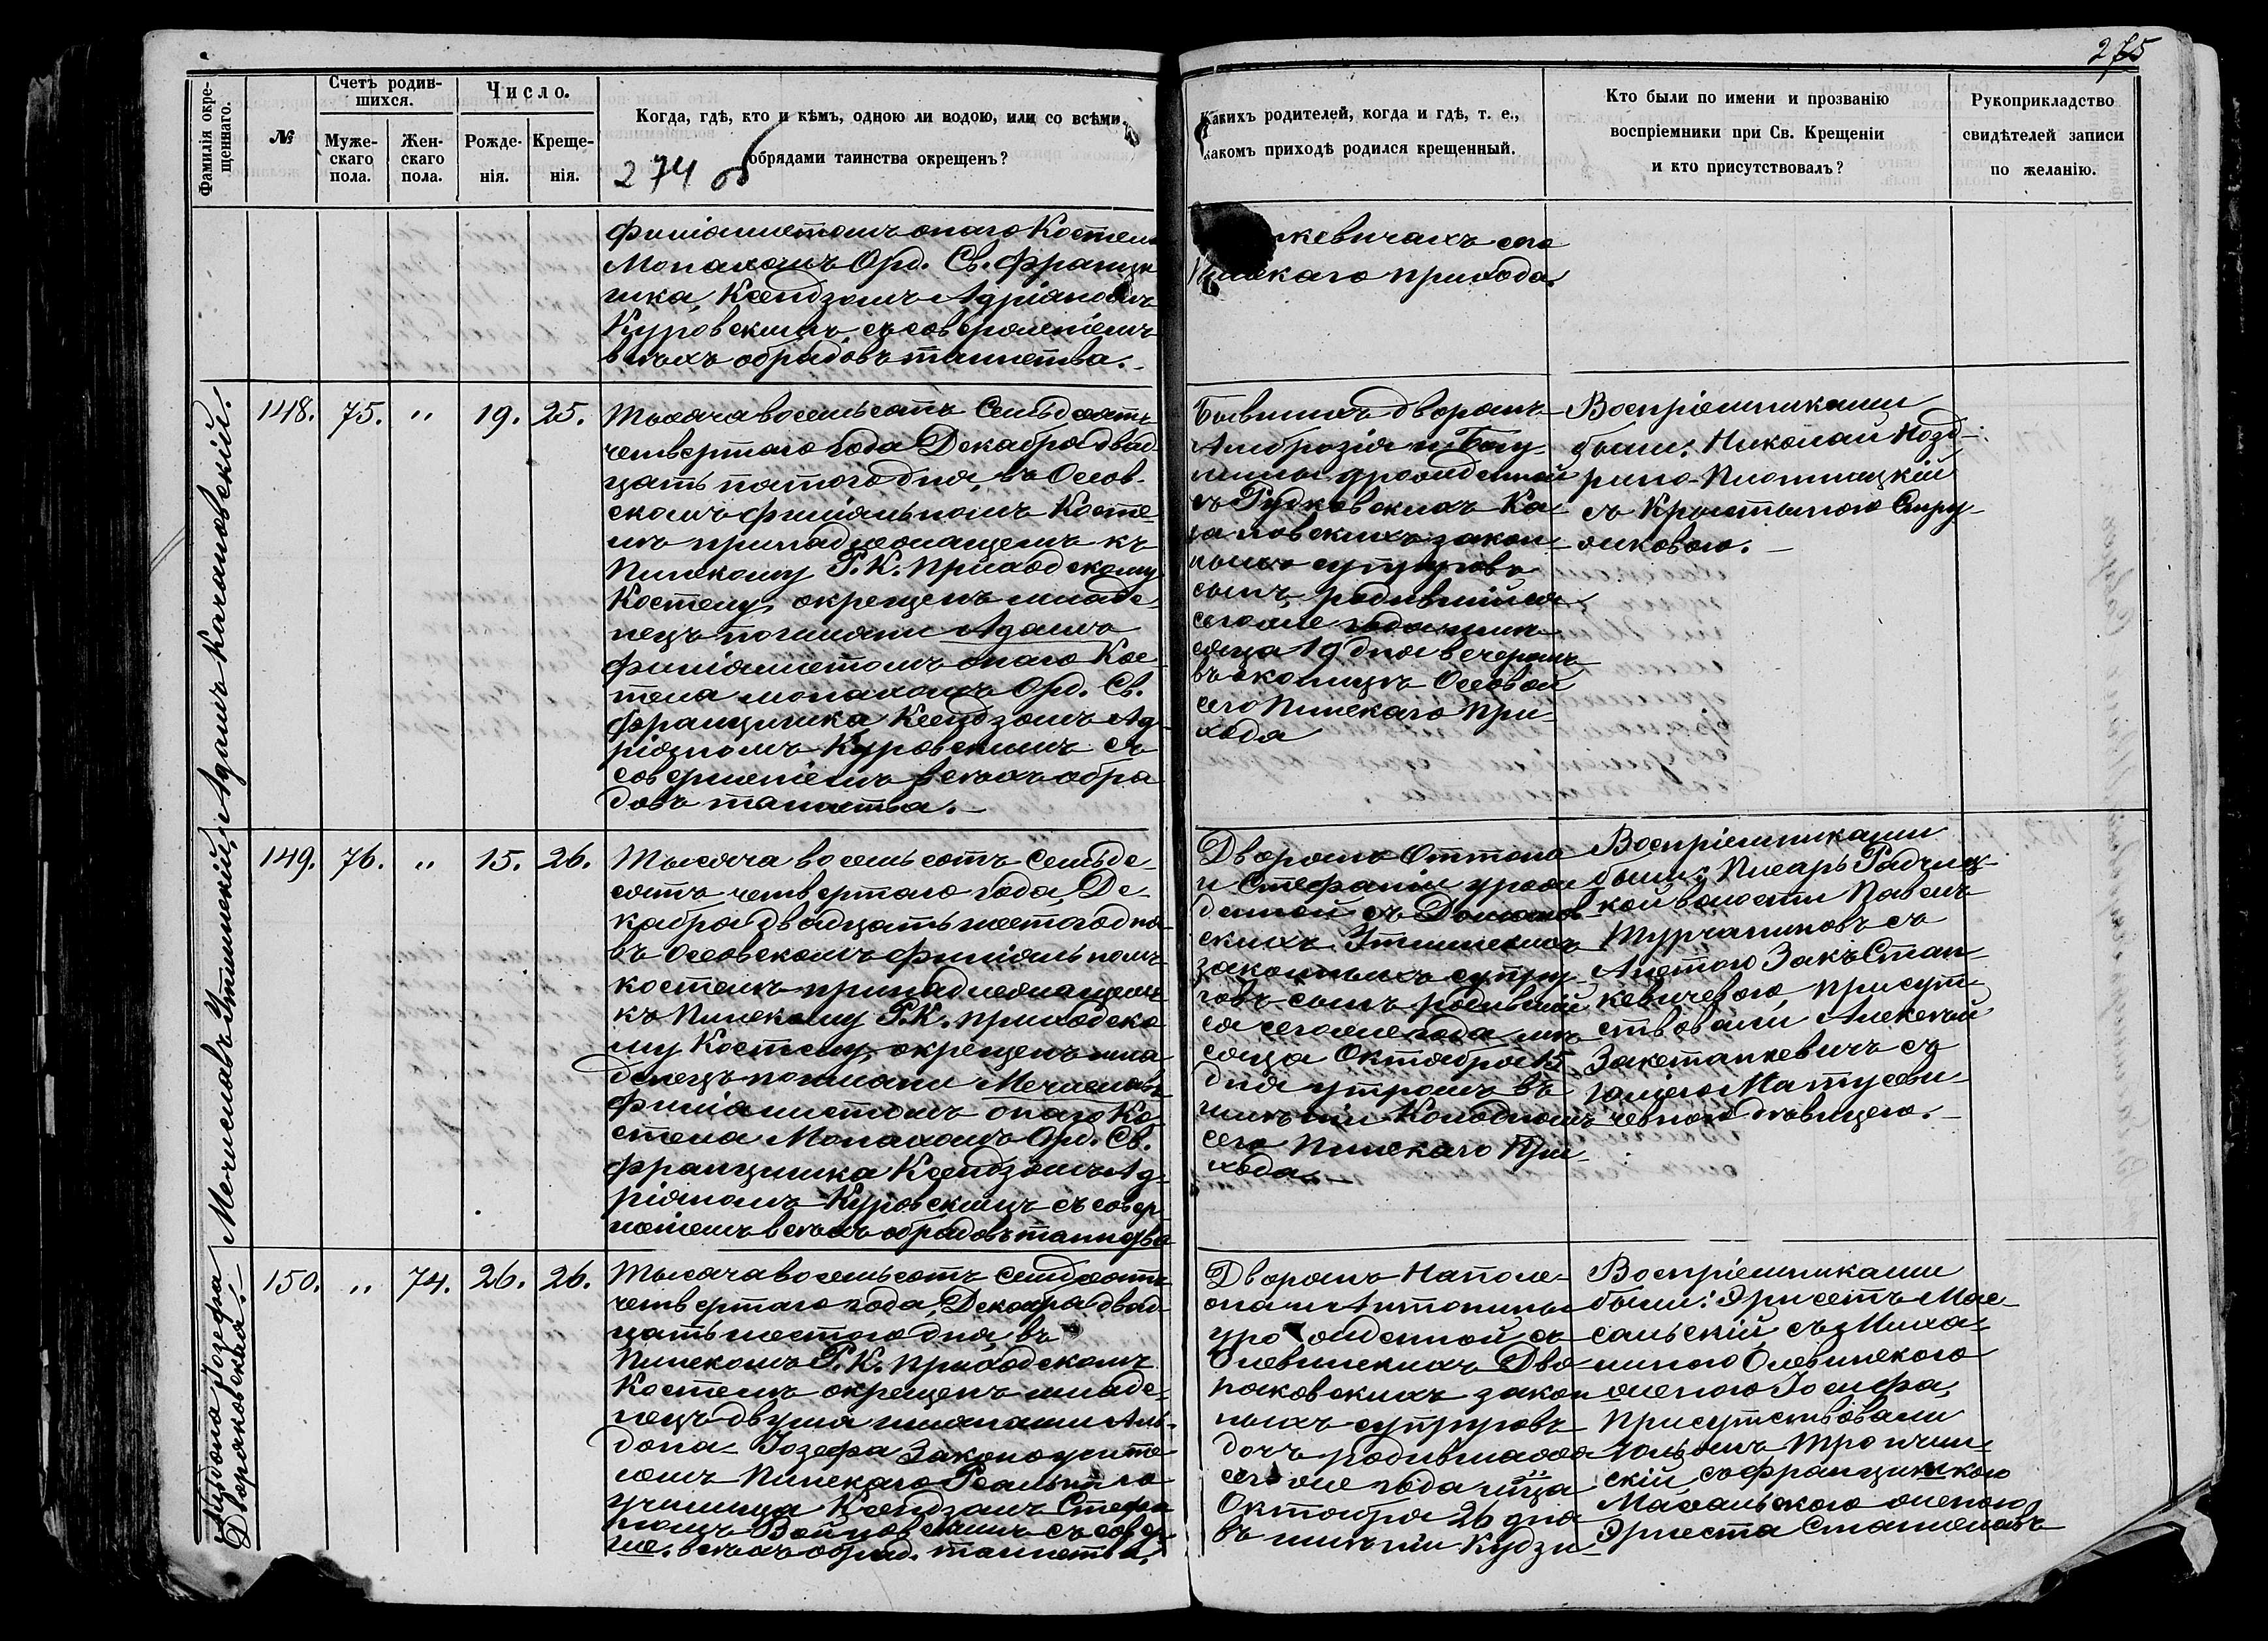 275
Фамилія окре-
щеннаго.
№
Счетъ родив-
шихся.
Муже-
скаго
пола.
Жен-
скаго
пола.
Число.
Рожде-
нія.
Креще-
нія.
Когда, гдѣ, кто и кѣмъ, одною ли водою, или со всѣми
обрядами таинства окрещенъ?
274 об
Какихъ родителей, когда и гдѣ, т. е.,
какомъ приходѣ родился крещенный.
Кто были по имени и прозванію
воспріемники при Св. Крещеніи
и кто присутствовалъ?
Рукоприкладство
свидѣтелей записи
по желанію.
филіалистомъ онаго Костела
Монахомъ Орд. Св. Францы
шка, Ксендзомъ Адріаномъ
Куровскимъ съ совершеніемъ
всѣхъ обрядовъ таинства.
кевичахъ сего
Пинскаго прихода.
Адамъ Качановскій.
148. 75. " 19. 25.
Тысяча восемьсотъ Семьдесятъ
четвертаго года Декабря двад-
цать пятого дня, въ Осов-
скомъ филіальномъ Косте-
лѣ принадлежащемъ къ
Пинскому Р. К. Приходскому
Костелу, окрещенъ младе-
нецъ по имени Адамъ
филіалистомъ онаго Кос-
тела монахомъ Орд. Св.
Францишка Ксендзомъ Ад-
ріяномъ Куровскимъ съ
совершеніемъ всѣхъ обря
довъ таинства.
Бывшихъ дворянъ
Амброзія и
урожденной
съ Рудковскихъ Ка-
чановскихъ закон-
ныхъ супруговъ
сынъ, родившійся
сего же года и мѣ-
сяца 19 дня вечеромъ
въ околицѣ Осовой
сего Пинскаго При-
хода
Воспріемниками
были: Николай Нозд-
рино-Плотницкій
съ Крыстыною Стру-
жковою.
Мечиславъ
149. 76. " 15. 26.
Тысяча восемьсотъ Семьде-
сятъ четвертаго года, Де-
кабря двадцать шестого дня
въ Осовскомъ филіальномъ
костелѣ принадлежащемъ
къ Пинскому Р. К. приходско
му Костелу, окрещенъ мла
денецъ по имени Мечиславъ
филіалистомъ онаго Ко-
стела Монахомъ Орд. Св.
Францишка Ксендзомъ Ад-
ріяномъ Куровскимъ съ совер-
шеніемъ всѣхъ обрядовъ таинства
Дворянъ Оттона
и Стефаніи урож
денной съ
скихъ
законныхъ супру-
говъ сынъ родившій
ся сего же года мѣ
сяца Октября 15
дня утромъ въ
имѣніи Колодномъ
сего Пинскаго При-
хода.
Воспріемниками
были: Писарь Радчиц-
кой волости Павелъ
Турчаниковъ съ
Анетою Закъ Стан-
кевичевою, присут-
ствовали Алексѣй
Закстанкевичъ съ
Юліею Матусеви-
чевною дѣвицею.
Альдона Іозефа
Дворяковская.
150. " 74. 26. 26.
Тысяча восемьсотъ семьдесятъ
четвертаго года, Декабря двад
цать шестого дня, въ
Пинскомъ Р. К. Приходскомъ
Костелѣ окрещенъ младе-
нецъ двумя именами Аль-
дона Іозефа Законоучите
лемъ Пинскаго Реальнаго
училища Ксендзомъ Стефа
номъ Войновскимъ съ совер
ше. всѣхъ обряд. таинства.
Дворянъ Наполе-
она и Антонины
урожденной съ
Олевинскихъ Дво-
раковскихъ закон
ныхъ супруговъ
дочь родившаяся
сего же года мца
Октября 26 дня
въ имѣніи Кудзи-
Воспріемниками
были: Эрнестъ Мас-
сальскій съ Миха-
линою Олевинскою
женою Іосифа,
Присутствовали
скій, съ Францишкою
Массальскою женою
Эрнеста